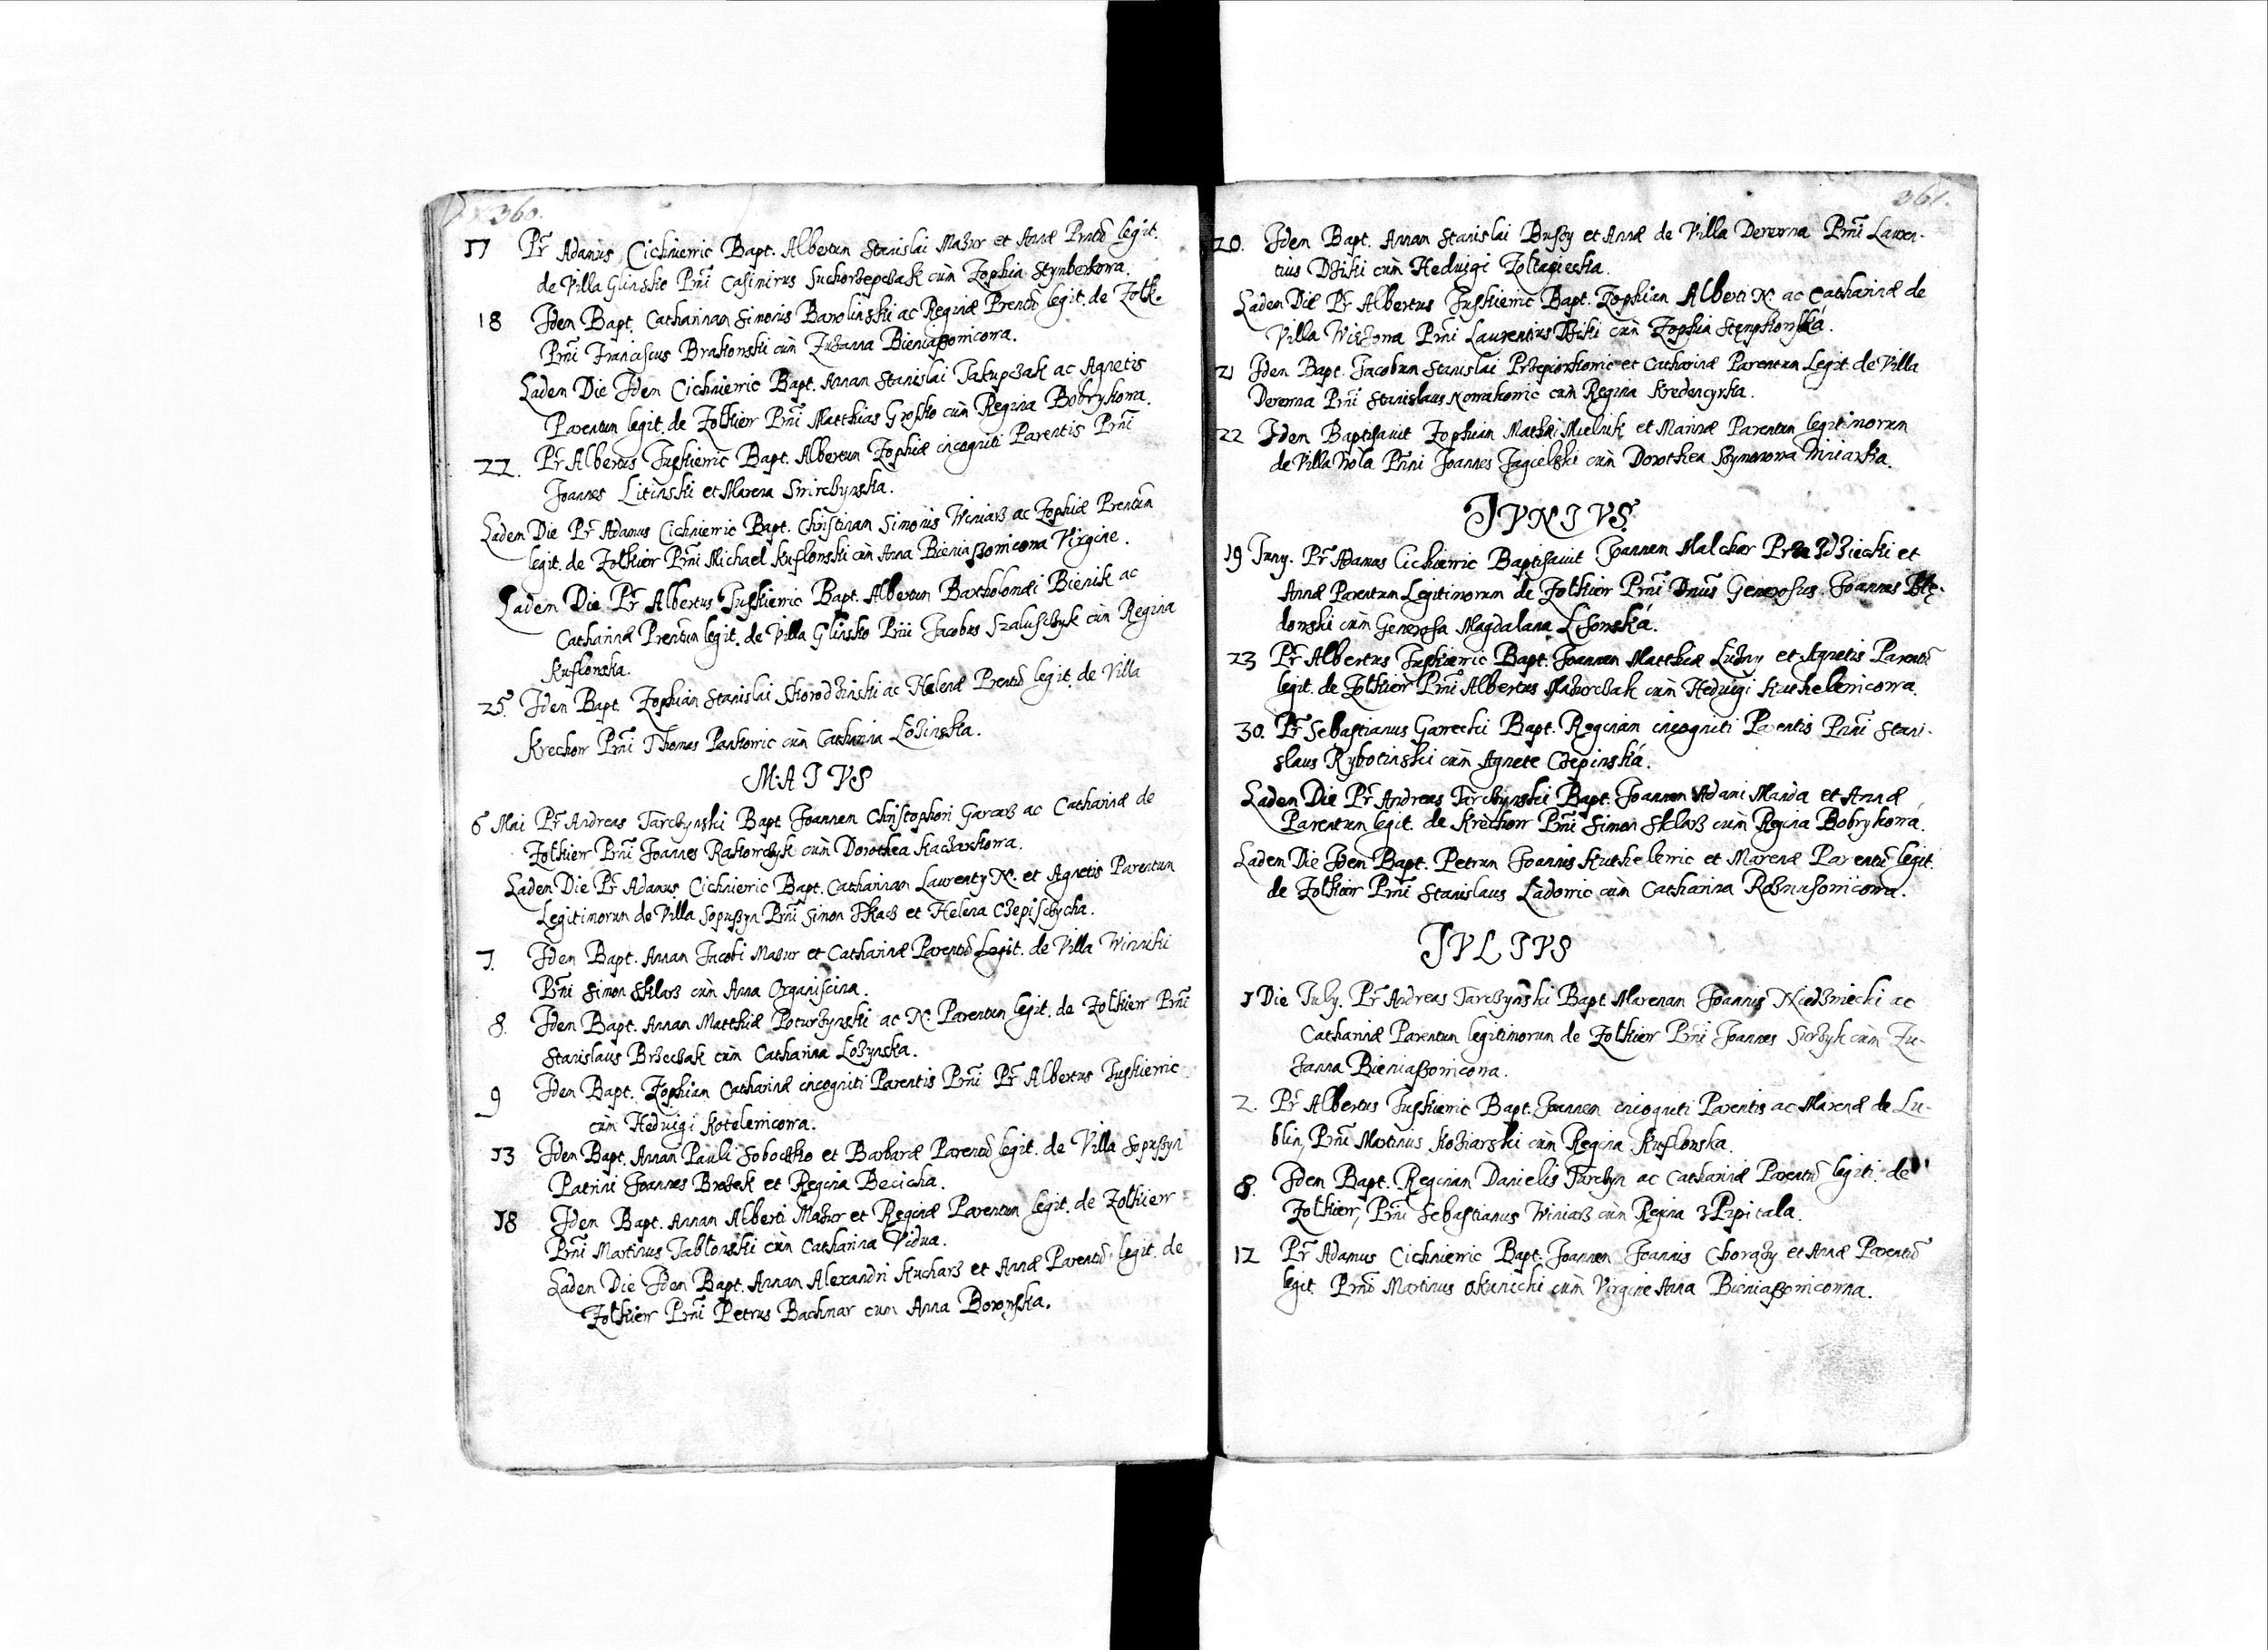 360.
17 Pr Adamus Cichniewic Bapt. Albertum Stanislai Mazur et Annæ Prntū legit.
de Villa Glinsko Prñi Casimirus Suchorzepczak cùm Zophia Stymberkowa.
18 Idem Bapt. Catharinam Simonis Barolinski ac Reginæ Prentū legit. de Zolk.
Prñi Franciscus Brakonski cùm Zuzanna Bieniaszowicowa.
Eadem Die Idem Cichniewic Bapt. Annam Stanislai Jakupczak ac Agnetis
Parentum legit. de Zolkiew Prñi Matthias Grosko cùm Regina Bobrykowa.
22. Pr Albertus Juskiewic Bapt. Albertum Zophiæ incogniti Parentis Prñi
Joannes Litinski et Marena Swirczynska.
Eadem Die Pr Adamus Cichniewic Bapt. Christinam Simonis Winiarz ac Zophiæ Prentum
legit. de Zolkiew Prñi Michael Kuslowski cùm Anna Bieniaszowicowa Virgine.
Eadem Die Pr Albertus Juskiewic Bapt. Albertum Bartholomæi Bienik ac
Catharinæ Prentum legit. de Villa Glinsko Prñi Jacobus Szalusczyk cùm Regina
Kuslowska.
25. Idem Bapt. Zophiam Stanislai Skorodzinski ac Helenæ Prentū legit. de Villa
Krechow Prñi Thomas Pankowic cùm Catharina Lozinska.
MAIVS
6 Mai Pr Andreas Tarczynski Bapt. Joannem Christophori Garcarz ac Catharinæ de
Zolkiew Prñi Joannes Rakowczyk cùm Dorothea Kaczarkowa.
Eadem Die Pr Adamus Cichniewic Bapt. Catharinam Laurenty N. et Agnetis Parentum
Legitimorum de Villa Sopuszyn Prñi Simon Tkacz et Helena Czepisczycha.
7. Idem Bapt. Annam Jacobi Mazur et Catharinæ Parentū Legit. de Villa Winniki
Prñi Simon Sklarz cùm Anna Organiscina.
8. Idem Bapt. Annam Matthiæ Poturzynski ac N. Parentum legit. de Zolkiew Prñi
Stanislaus Brzeczak cùm Catharina Lozynska.
9 Idem Bapt. Zophiam Catharinæ incogniti Parentis Prñi Pr Albertus Juskiewic
cùm Hedvigi Kotelewicowa.
13 Idem Bapt. Annam Pauli Sobotko et Barbaræ Parentū legit. de Villa Sopuszyn
Patrini Joannes Brozek et Regina Becicha.
18 Idem Bapt. Annam Alberti Mazur et Reginæ Parentum legit. de Zolkiew
Prñi Martinus Jablonski cùm Catharina Vidua.
Eadem Die Idem Bapt. Annam Alexandri Kucharz et Annæ Parentū legit. de
Zolkiew Prñi Petrus Bachmar cum Anna Boronska.
361.
20. Idem Bapt. Annam Stanislai Buszy et Annæ de Villa Derewna Prñi Lauren-
tius Dziki cùm Hedvigi Zoltaniecka.
Eadem Die Pr Albertus Juskiewic Bapt. Zophiam Alberti N. ac Catharinæ de
Villa Wiezowa Prñi Laurentius Dziki cùm Zophia Stęmpkowská.
21 Idem Bapt. Jacobum Stanislai Przepiorkowic et Catharinæ Parentum Legit. de Villa
Derewna Prñi Stanislaus Nowakowic cùm Regina Kredencyrka.
22 Idem Baptisavit Zophiam Mathæi Mielnik et Marinæ Parentum legitimorum
de Villa Wola Prñi Joannes Jagielski cùm Dorothea Szymonowa Winiarka.
IVNIVS.
19 Juny. Pr Adamus Cichniewic Baptisavit Joannem Malcher Przezdziecki et
Annæ Parentum Legitimorum de Zolkiew Prñi Dnus Generosus Joannes Blę-
donski cùm Generosa Magdalana Lisowská.
23 Pr Albertus Juskiewic Bapt. Joannem Matthiæ Luzny et Agnetis Parentū
legit. de Zolkiew Prñi Albertus Mazorczak cùm Hedvigi Kuthelewicowa.
30. Pr Sebastianus Garecki Bapt. Reginam incogniti Parentis Prñi Stani-
slaus Rybotinski cùm Agnete Czepinská.
Eadem Die Pr Andreas Tarczynski Bapt. Joannem Adami Manda et Annæ
Parentum legit. de Krechow Prñi Simon Sklarz cùm Regina Bobrykowá.
Eadem Die Idem Bapt. Petrum Joannis Kuthelewic et Marenæ Parentū legit.
de Zolkiew Prñi Stanislaus Ladowic cùm Catharina Roznuszowicowa.
IVLIVS
1 Die July. Pr Andreas Tarczynski Bapt. Marenam Joannis Niedzwiecki ac
Catharinæ Parentum legitimorum de Zolkiew Prñi Joannes Surzyk cùm Zu-
zanna Bieniaszowicowa.
2. Pr Albertus Juskiewic Bapt. Joannem incogniti Parentis ac Marenæ de Lu-
blin, Prñi Martinus Koziarski cùm Regina Kuslowska.
8. Idem Bapt. Reginam Danielis Turczyn ac Catharinæ Parentū legiti. de
Zolkiew, Prñi Sebastianus Winiarz cùm Regina z Szpitala.
12 Pr Adamus Cichniewic Bapt. Joannem Joannis Chorązy et Annæ Parentū
legit. Prñi Martinus Okunicki cùm Virgine Anna Bieniaszowicowna.